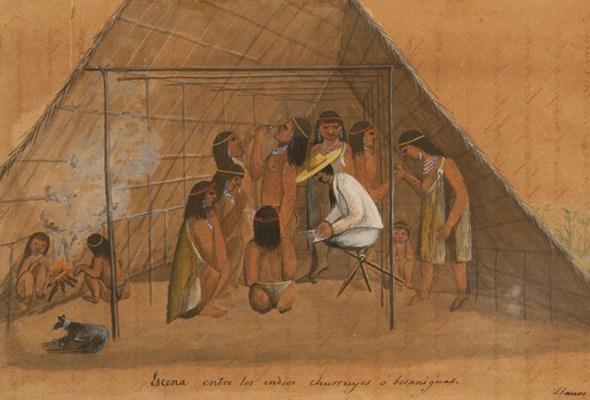 Escena entre los indios churruyes ó besaniguas.
Llanos